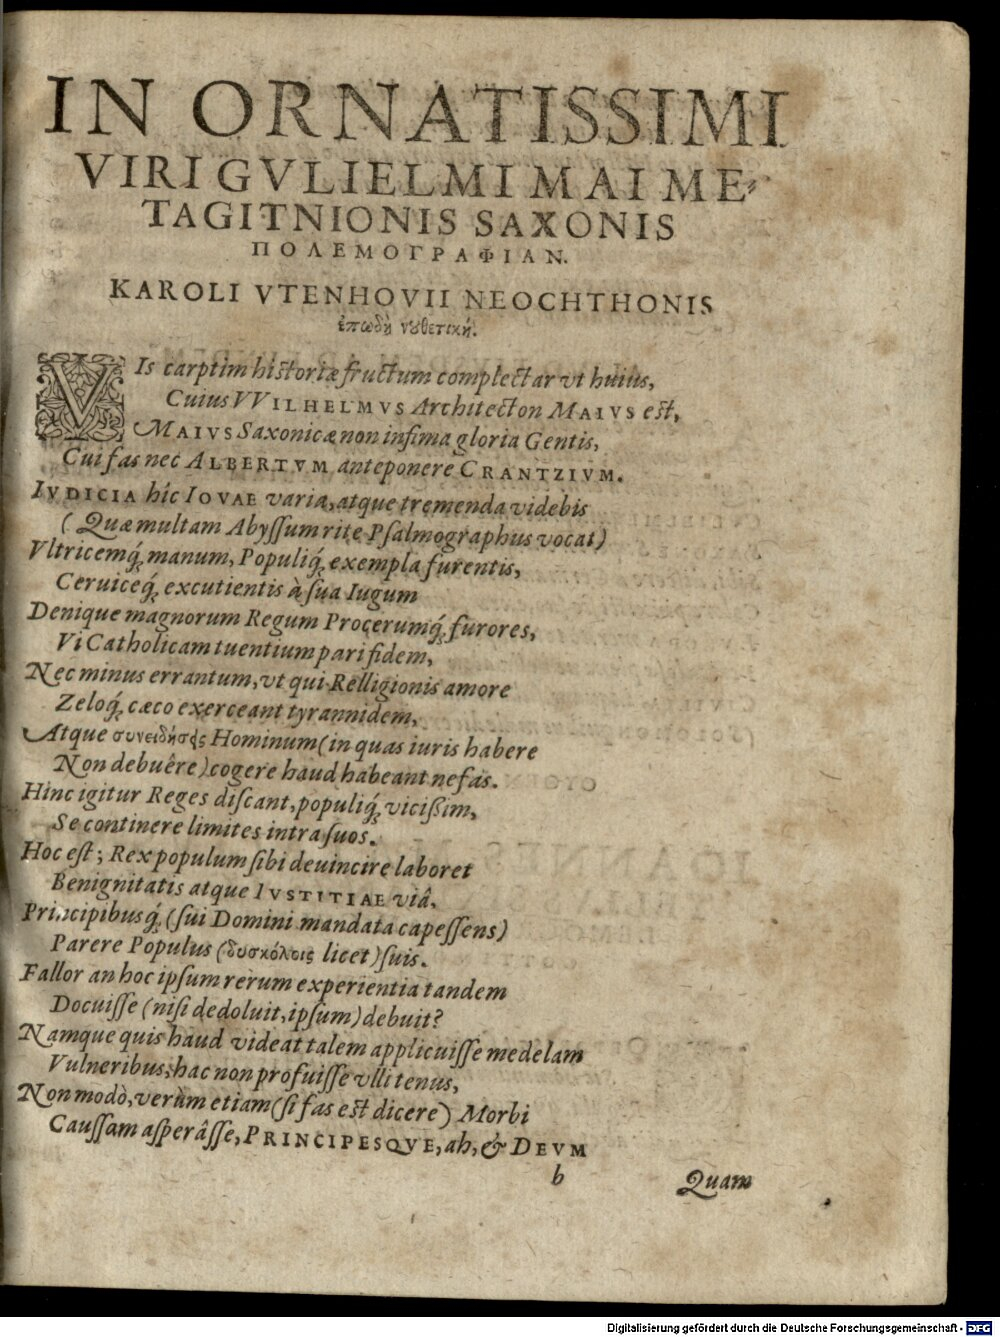 IN ORNATISSIMI
VIRI GVLIELMI MAI ME-
TAGITNIONIS SAXONIS
ΠΟΛΕΜΟΓΡΑΦΙΑΝ.
KAROLI VTENHOVII NEOCHTHONIS
ἐπωδὴ νȣθετική.
VIs carptim historiæ fructum complectar vt huius,
Cuius VVILHELMVS Architecton MAIVS est,
MAIVS Saxonicæ non infima gloria Gentis,
Cui fas nec ALBERTVM anteponere CRANTZIVM.
IVDICIA hîc IOVAE varia, atque tremenda videbis
(Quæ multam Abyſſum rite Pſalmographus vocat)
Vltricemq́; manum, Populiq́; exempla furentis,
Ceruiceq́; excutientis à ſua Iugum
Denique magnorum Regum Procerumq́; furores,
Vi Catholicam tuentium pari fidem,
Nec minus errantum, vt qui Relligionis amore
Zeloq́; cæco exerceant tyrannidem,
Atque συνειδήσς Hominum (in quas iuris habere
Non debuêre) cogere haud habeant nefas.
Hinc igitur Reges diſcant, populiq́; vicißim,
Se continere limites intra ſuos.
Hoc eſt; Rex populum ſibi deuincire laboret
Benignitatis atque IVSTITIAE viâ,
Principibusq́; (ſui Domini mandata capeſſens)
Parere Populus (δυσκόλοις licet) ſuis.
Fallor an hoc ipſum rerum experientia tandem
Docuiſſe (niſi dedoluit, ipſum) debuit?
Namque quis haud videat talem applicuiſſe medelam
Vulneribus, hac non profuiſſe vlli tenus,
Non modò, verùm etiam (ſi fas est dicere) Morbi
Cauſſam aſperâſſe, PRINCIPESQVE, ah, & DEVM
b
Quam
Digitalisierung gefördert durch die Deutsche Forschungsgemeinschaft - DFG